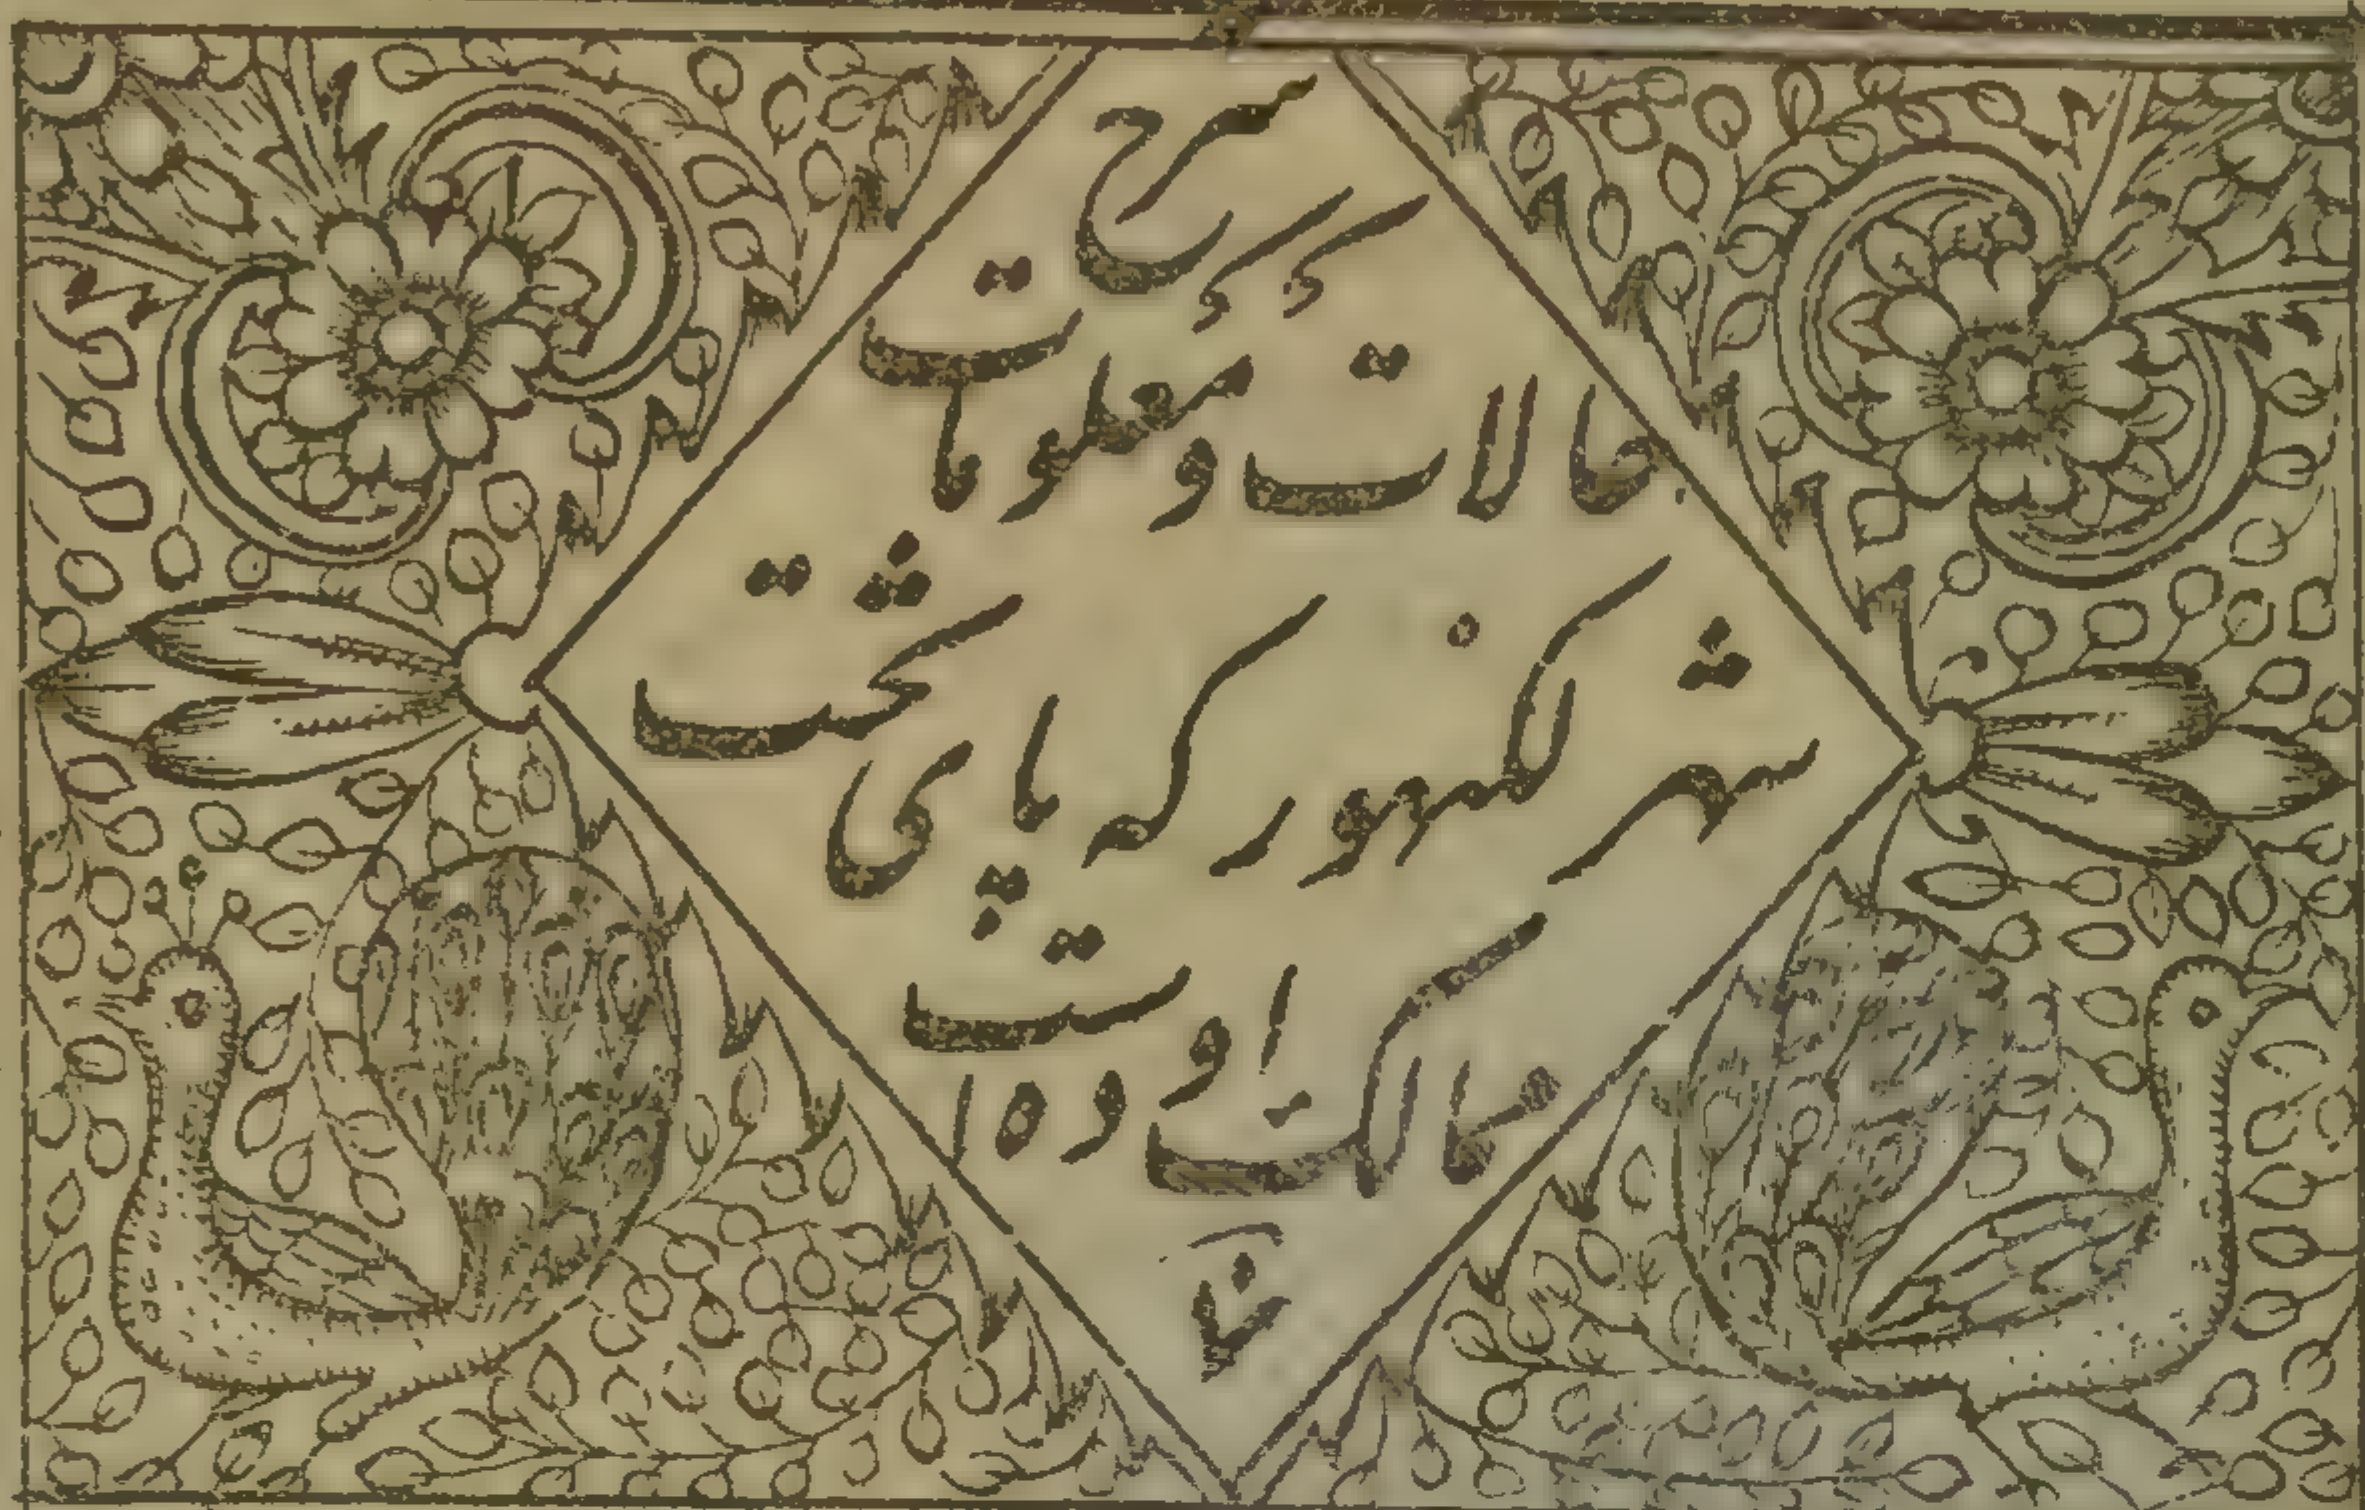 شرح
حالات و معلومات
شهر لکنهور که پای تخت
ممالک اوده است